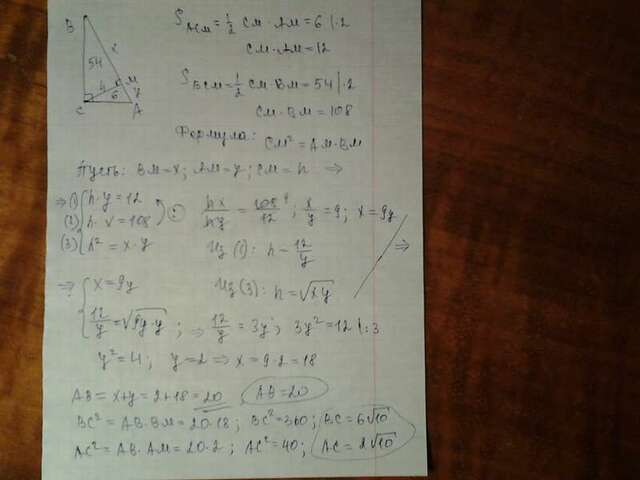 B
x
54
h
M
6
y
C
A
S ACM = 1/2 CM · AM = 6 |·2
CM · AM = 12
S BCM = 1/2 CM · BM = 54 |·2
CM · BM = 108
Формула: CM² = AM · BM
Пусть: BM = x; AM = y; CM = h ⇒
⇒ (1) { h · y = 12
(2) { h · x = 108
(3) { h² = x · y
(:) hx/hy = 108 9/12; x/y = 9; x = 9y
Из (1): h = 12/y
⇒
Из (3): h = √xy
⇒ { x = 9y
12/y = √9y·y; ⇒ 12/y = 3y; 3y² = 12 |:3
y² = 4; y = 2 ⇒ x = 9·2 = 18
AB = x+y = 2+18 = 20 AB = 20
BC² = AB · BM = 20·18; BC² = 360; BC = 6√10
AC² = AB · AM = 20·2; AC² = 40; AC = 2√10